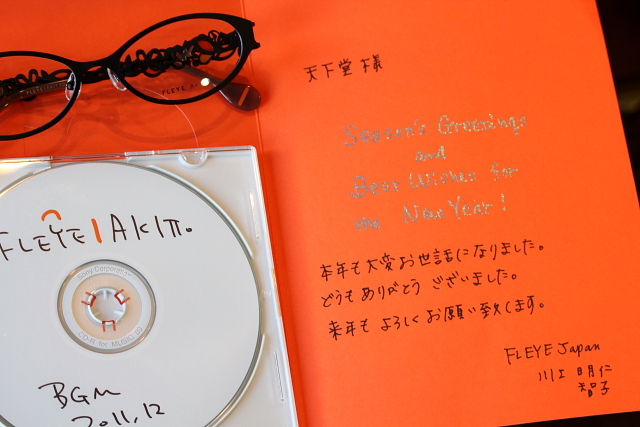 天下堂 様
Season's Greetings
and
Best Wishes for
the New Year!
本年も大変お世話になりました。
どうもありがとうございました。
来年もよろしくお願い致します。
FLEYE Japan
川江 明仁
智子
FLEYE
FLEYE | AKITI。
Sony Corporation
CD-R for MUSIC 80
BGM
2011.12